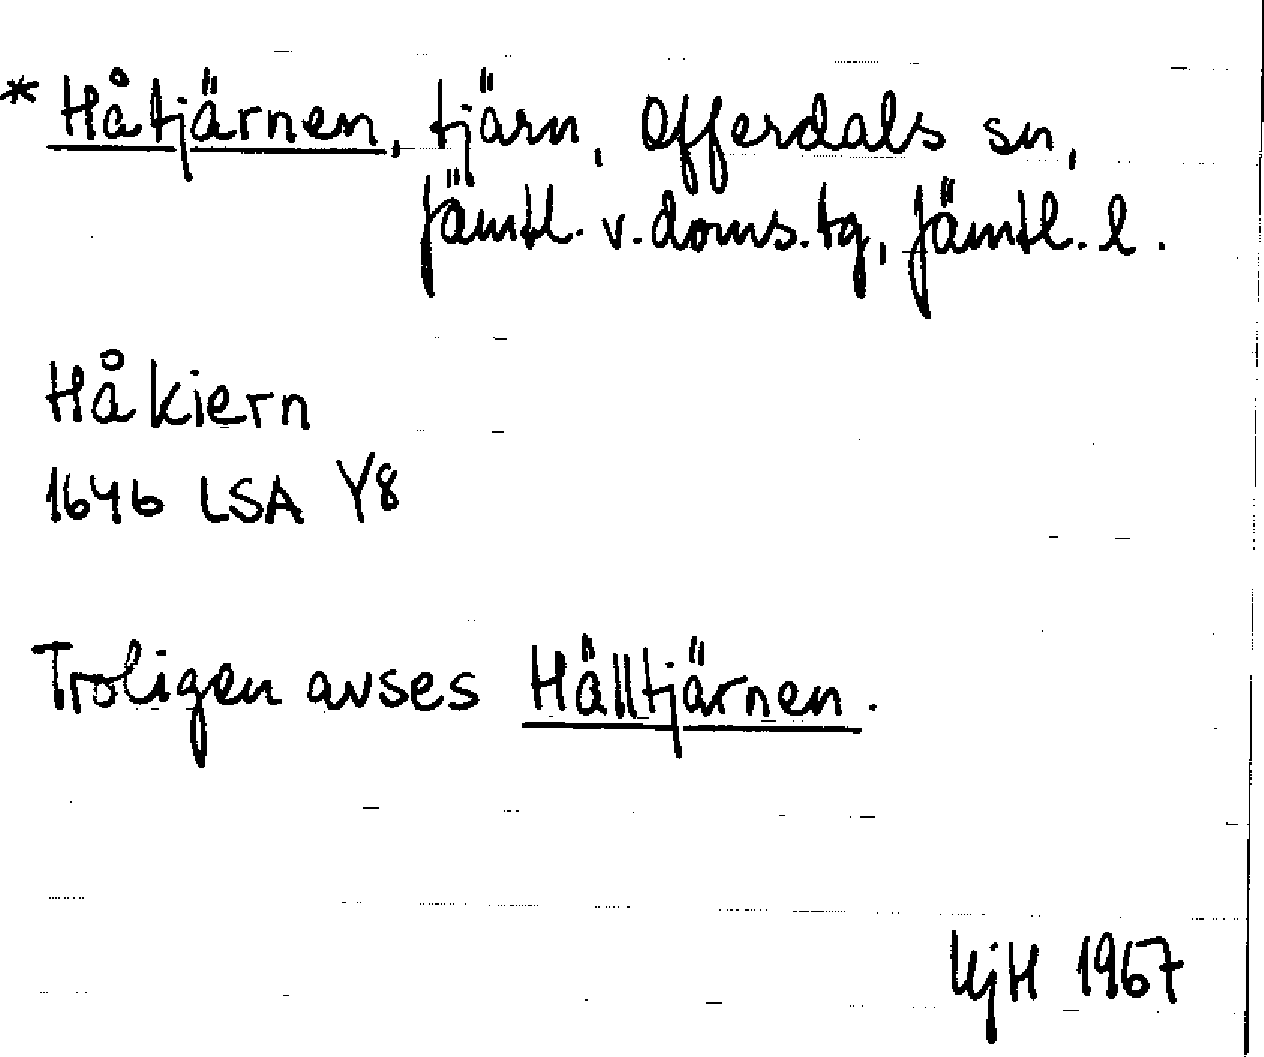 * Håtjärnen, tjärn, Offerdals sn,
Jämtl. v. doms. tg, Jämtl. l.
Håkiern
1646 LSA Y8
Troligen avses Hälltjärnen.
KjH 1967